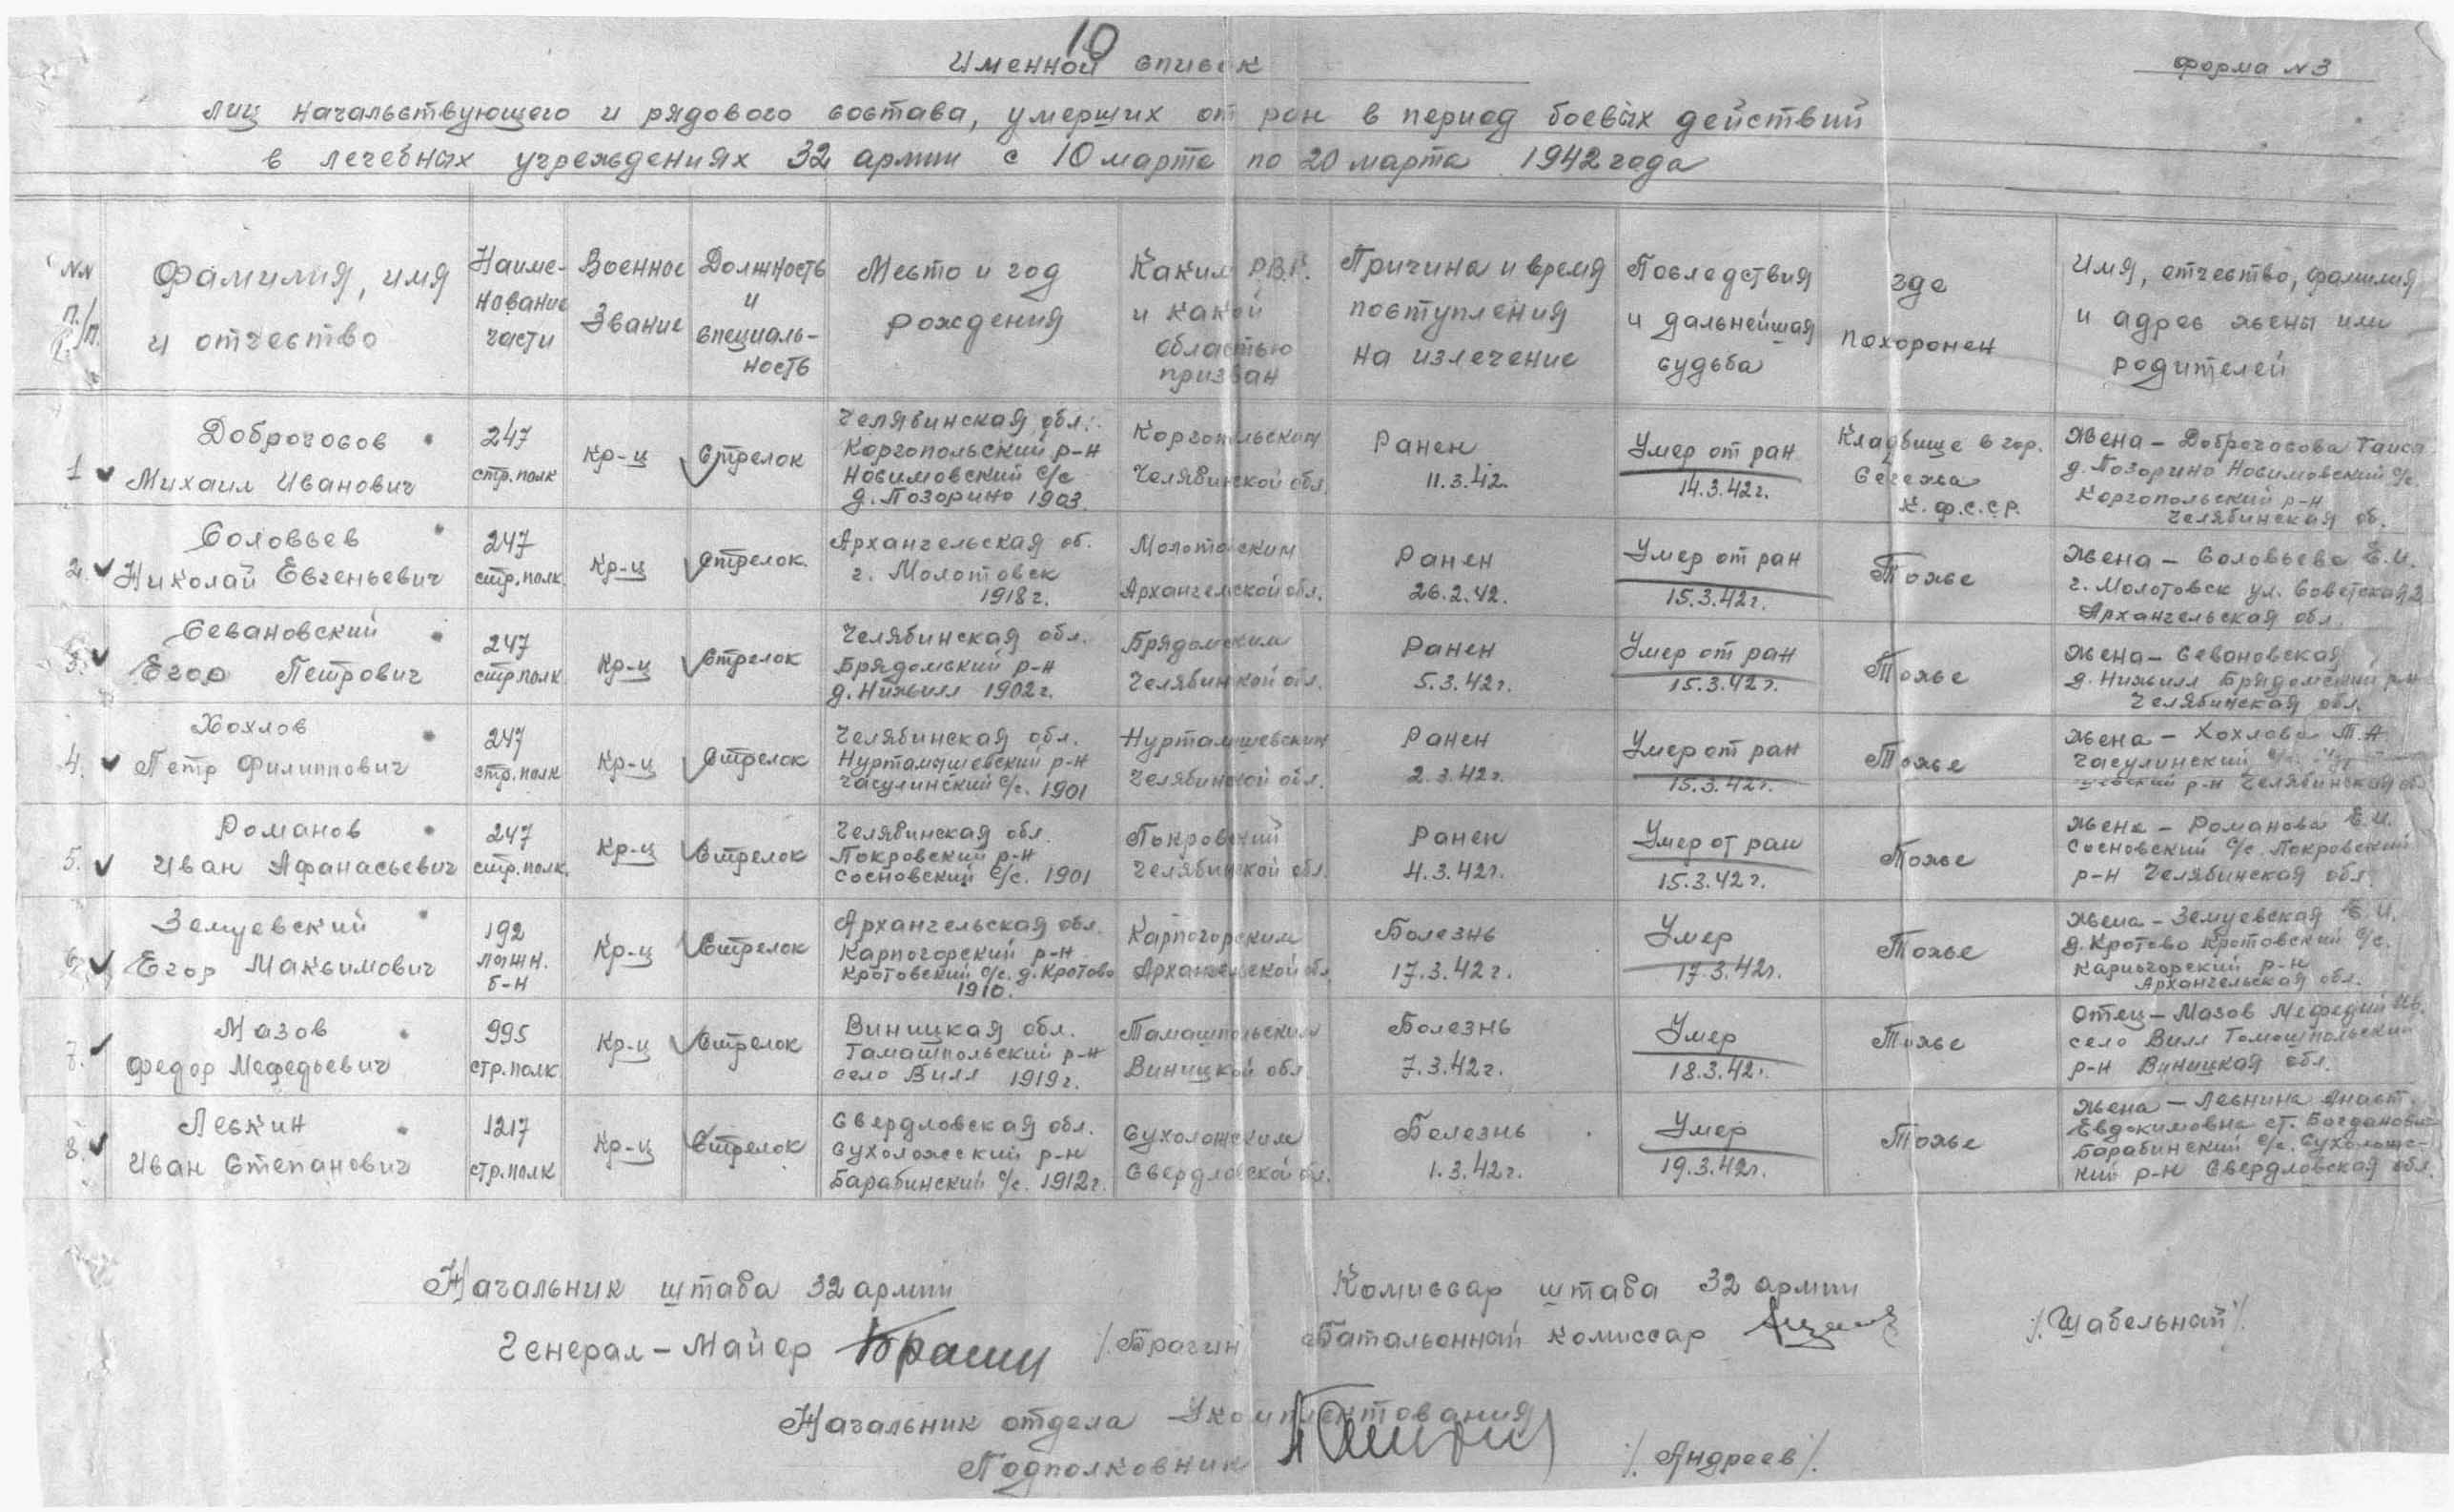 10
Именной список
Форма N 3
лиц начальствующего и рядового состава, умерших от ран в период боевых действий
в лечебных учреждениях 32 армии с 10 марта по 20 марта 1942 года
NN п./п.
Фамилия, имя
и отчество
Наиме-
нование
части
Военное
Звание
Должность
и
специаль-
ность
Место и год
рождения
Каким Р.В.К.
и какой
областью
призван
Причина и время
поступления
на излечение
Последствия
и дальнейшая
судьба
где
похоронен
Имя, отчество, фамилия
и адрес жены или
родителей
1
Доброчасов
Михаил Иванович
247
стр. полк
Кр-ц
Стрелок
Челябинская обл.
Каргопольский р-н
Новимовский с/с
д. Позорино 1903.
Каргопольским
Челябинской обл.
Ранен
11.3.42.
Умер от ран
14.3.42г.
Кладбище в гор.
Сегежа
К.Ф.С.С.Р.
Жена - Доброчасова Таиса
д. Позорино Новимовский с/с.
Каргопольский р-н
Челябинская об.
2.
Соловьев
Николай Евгеньевич
247
стр. полк
Кр-ц
Стрелок.
Архангельская об.
г. Молотовск
1918г.
Молотовским
Архангельской обл.
Ранен
26.2.42.
Умер от ран
15.3.42г.
Тоже
Жена - Соловьева Е.И.
г. Молотовск ул. Советская 2
Архангельская обл.
3.
Севановский
Егор Петрович
247
стр. полк
Кр-ц
Стрелок
Челябинская обл.
Брядомский р-н
д. Нижилл 1902г.
Брядомским
Челябинской обл.
Ранен
5.3.42г.
Умер от ран
15.3.42г.
Тоже
Жена - Севановская
д. Нижилл Брядомский р-н
Челябинская обл.
4.
Хохлов
Петр Филиппович
247
стр. полк
Кр-ц
Стрелок
Челябинская обл.
Нуртамышевский р-н
Часулинский с/с. 1901
Нурталишевским
Челябинской обл.
Ранен
2.3.42г.
Умер от ран
15.3.42г.
Тоже
Жена - Хохлова Т.А.
Часулинский с/с.
р-н Челябинская об.
5.
Романов
Иван Афанасьевич
247
стр. полк.
Кр-ц
Стрелок
Челябинская обл
Покровский р-н
Сосновский с/с. 1901
Покровский
Челябинской обл.
Ранен
4.3.42г.
Умер от ран
15.3.42г.
Тоже
Жена - Романова Е.И.
Сосновский с/с. Покровский
р-н Челябинская обл.
6.
Земуевский
Егор Максимович
192
лыжн.
б-н
Кр-ц
Стрелок
Архангельская обл.
Карпогорский р-н
Кротовский с/с. д. Кротово
1910.
Карпогорским
Архангельской обл
Болезнь
17.3.42г.
Умер
17.3.42г.
Тоже
Жена - Земуевская Е.И.
д. Кротово Кротовский с/с.
Карпогорский р-н
Архангельская обл.
7.
Мазов
Федор Мефедьевич
995
стр. полк.
Кр-ц
Стрелок
Виницкая обл.
Тамашпольский р-н
село Вилл 1919г.
Тамашпольским
Виницкой обл
Болезнь
7.3.42г.
Умер
18.3.42г.
Тоже
Отец - Мазов Мефедий Ив.
село Вилл Томошпольский
р-н Виницкая обл.
8.
Левкин
Иван Степанович
1217
стр. полк
Кр-ц
Стрелок
Свердловская обл.
Сухоложеский р-н
Барабинский с/с. 1912г.
Сухоложским
Свердловской обл.
Болезнь
1.3.42г.
Умер
19.3.42г.
Тоже
Жена - Левкина Анаст.
Евдокимовна ст. Богданович
Барабинский с/с. Сухоложс-
кий р-н Свердловская обл.
Начальник штаба 32 армии
Комиссар штаба 32 армии
Генерал-Майор /Брагин/
Батальонный комиссар /Щабельный/
Начальник отдела Укомплектования
Подполковник /Андреев/